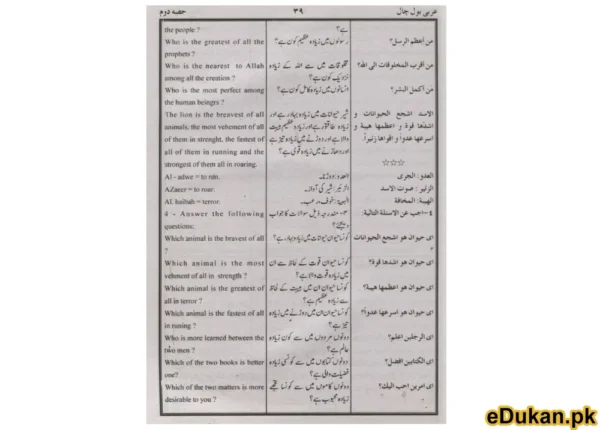 حصہ دوم
۳۹
عربی بول چال
the people ?
Who is the greatest of all the
prophets ?
Who is the nearest to Allah
among all the creation ?
Who is the most perfect among
the human beingrs ?
The lion is the breavest of all
animals, the most vehement of all
of them in strenght, the fastest of
all of them in running and the
strongest of them all in roaring.
Al - adwe = to run.
AZaeer = to roar.
AL haibah = terror.
4 - Answer the following
questions:
Which animal is the bravest of all
?
Which animal is the most
vehment of all in strength ?
Which animal is the greatest of
all in terror ?
Which animal is the fastest of all
in runing ?
Who is more learned between the
two men ?
Which of the two books is better
one?
Which of the two matters is more
desirable to you ?
ہے؟
رسولوں میں زیادہ عظیم کون ہے؟
مخلوقات میں سے اللہ کے زیادہ
نزدیک کون ہے؟
انسانوں میں زیادہ کامل کون ہے؟
شیر حیوانات میں زیادہ بہادر ہے اور
زیادہ طاقتور ہے اور زیادہ عظیم ہیبت
والا ہے اور دوڑنے میں زیادہ تیز ہے
اور دھاڑنے میں زیادہ قوی ہے؟
العدو: دوڑنا۔
الزئیر: شیر کی آواز۔
الہیبۃ: خوف، رعب۔
۴- مندرجہ ذیل سوالات کا جواب
دیجئے؟
کونسا حیوان حیوانات میں زیادہ بہادر ہے؟
کونسا حیوان قوت کے لحاظ سے ان
میں زیادہ قوت والا ہے؟
کونسا حیوان ان میں ہیبت کے لحاظ
سے زیادہ عظیم ہے؟
کونسا حیوان ان میں دوڑنے میں زیادہ
تیز ہے؟
دونوں مردوں میں سے کون زیادہ
عالم ہے؟
دونوں کتابوں میں سے کونسی زیادہ
فضیلت والی ہے؟
دونوں کاموں میں سے کونسا تجھے
زیادہ محبوب ہے؟
من أعظم الرسل؟
من أقرب المخلوقات الى الله؟
من أكمل البشر؟
الاسد اشجع الحيوانات و
اشدها قوة و اعظمها هيبة و
اسرعها عدواً و اقواها زئيراً.
☆☆☆
العدو: الجرى
الزئير: صوت الاسد
الهيبة: المخافة
٤-اجب عن الاسئلة التالية:
اى حيوان هو اشجع الحيوانات
اى حيوان هو اشدها قوة؟
اى حيوان هو اعظمها هيبة؟
اى حيوان هو اسرعها عدواً؟
اى الرجلين اعلم؟
اى الكتابين افضل؟
اى امرين احب اليك؟
eDukan.pk